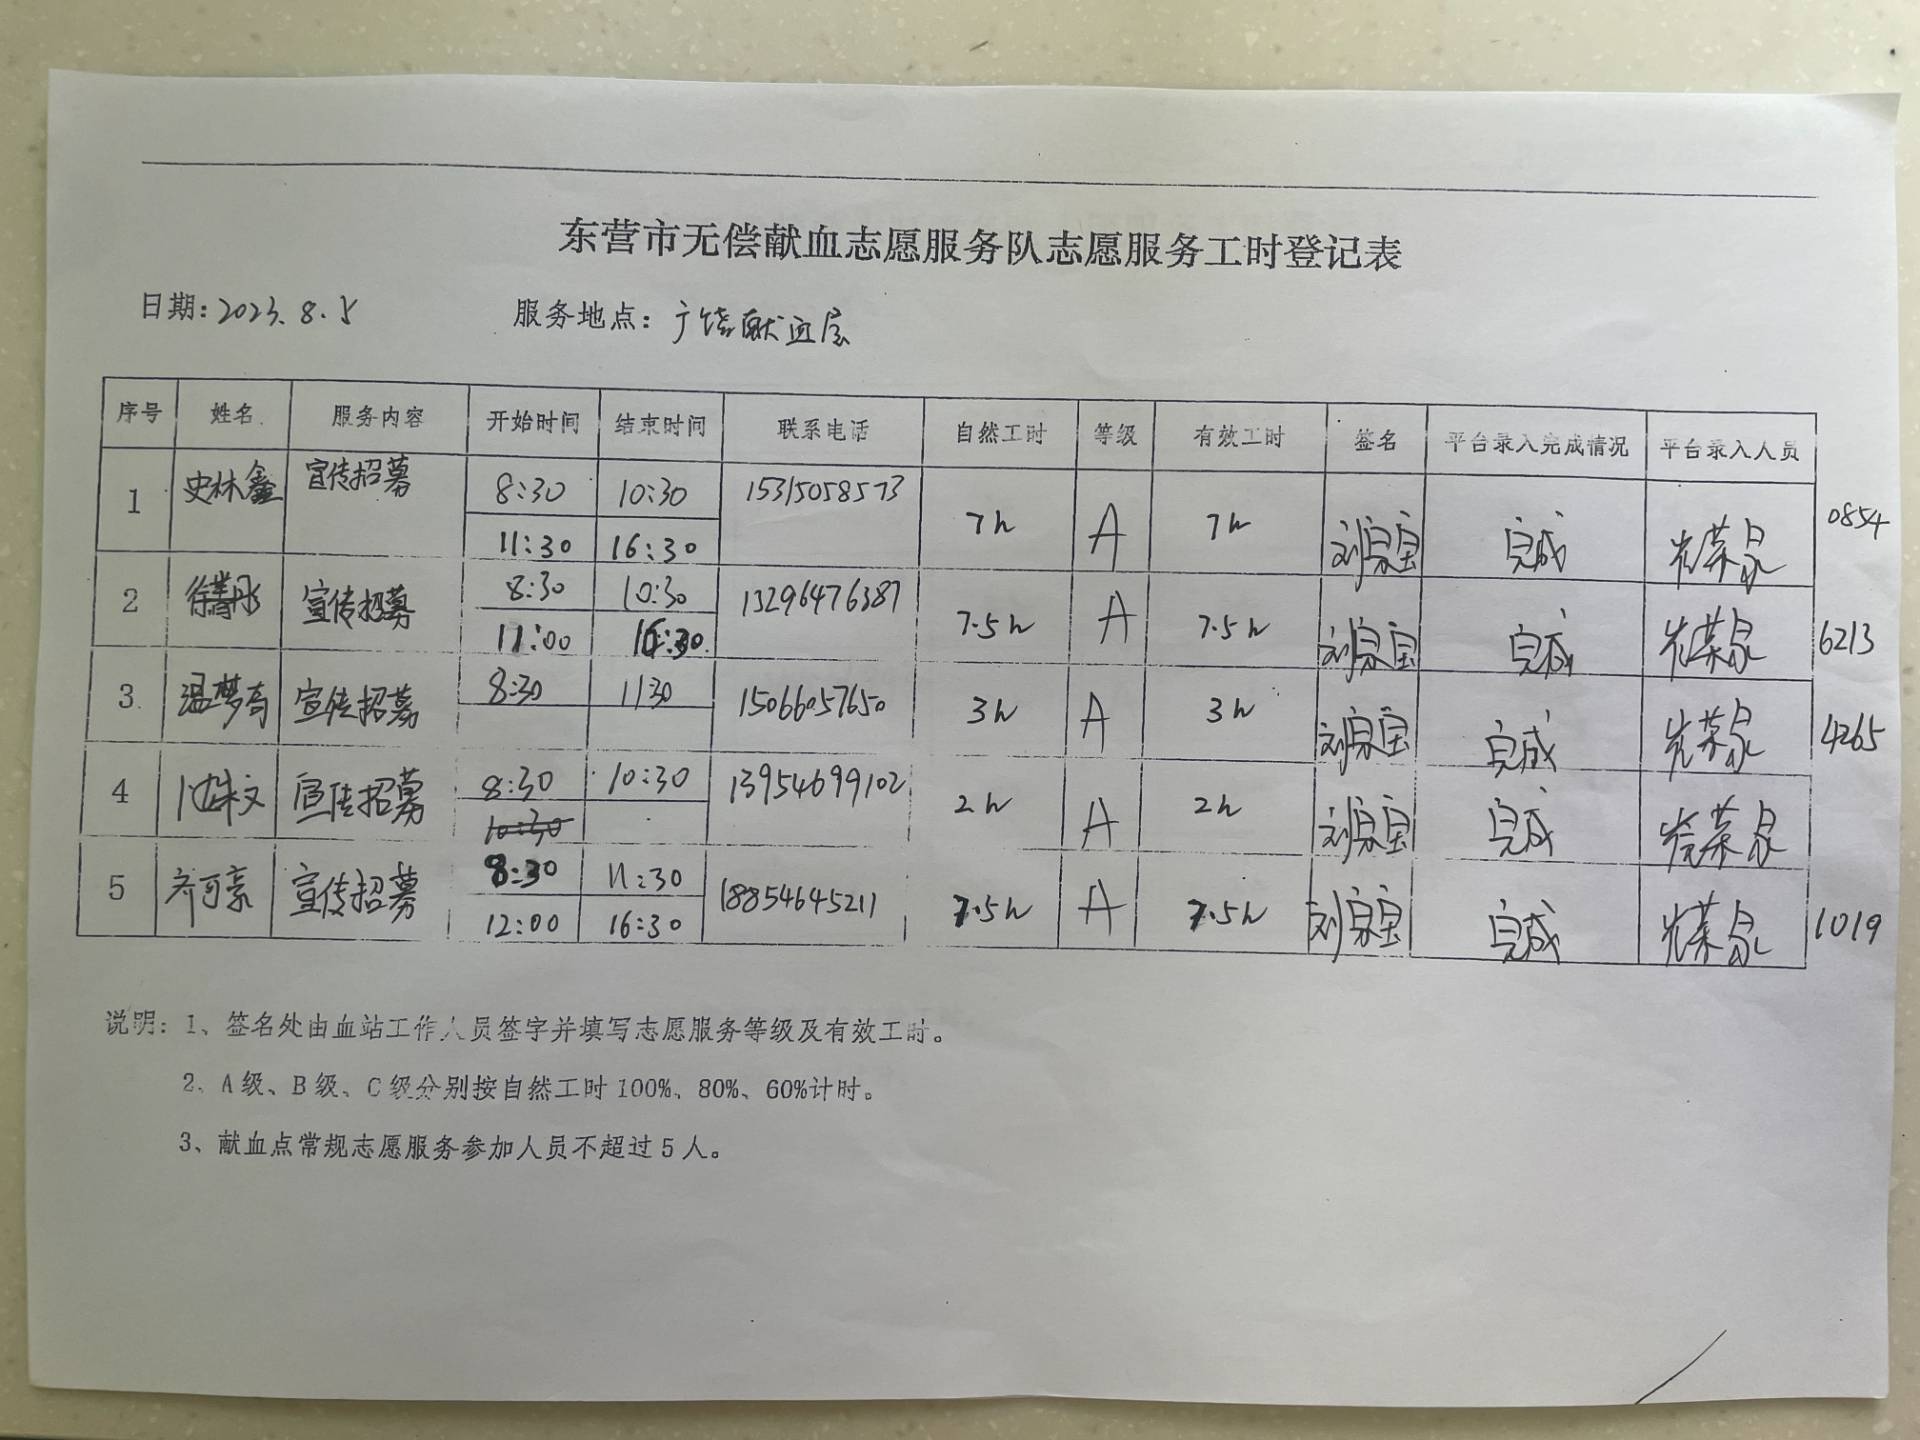 东营市无偿献血志愿服务队志愿服务工时登记表
日期: 2023.8.5 服务地点: 广饶献血屋
序号 姓名 服务内容 开始时间 结束时间 联系电话 自然工时 等级 有效工时 签名 平台录入完成情况 平台录入人员
1 史林鑫 宣传招募 8:30 10:30 15315058573 7h A 7h 刘泉宝 完成 0854
11:30 16:30
2 宣传招募 8:30 10:30 13296476387 7.5h A 7.5h 刘泉宝 完成 6213
11:00 16:30
3 温梦奇 宣传招募 8:30 1130 15066057650 3h A 3h 刘泉宝 完成 4265
4 宣传招募 8:30 10:30 13954699102 2h A 2h 刘泉宝 完成
10:30
5 齐可豪 宣传招募 8:30 11:30 18854645211 7.5h A 7.5h 刘泉宝 完成 1019
12:00 16:30
说明: 1、签名处由血站工作人员签字并填写志愿服务等级及有效工时。
2、A级、B级、C级分别按自然工时100%、80%、60%计时。
3、献血点常规志愿服务参加人员不超过5人。